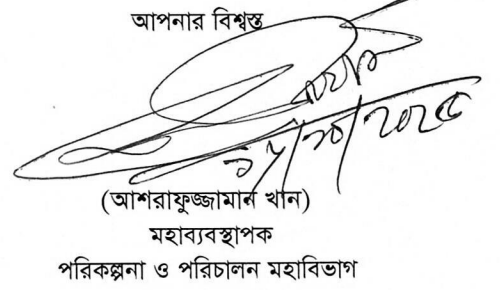 আপনার বিশ্বস্ত
(আশরাফুজ্জামান খান)
মহাব্যবস্থাপক
পরিকল্পনা ও পরিচালন মহাবিভাগ